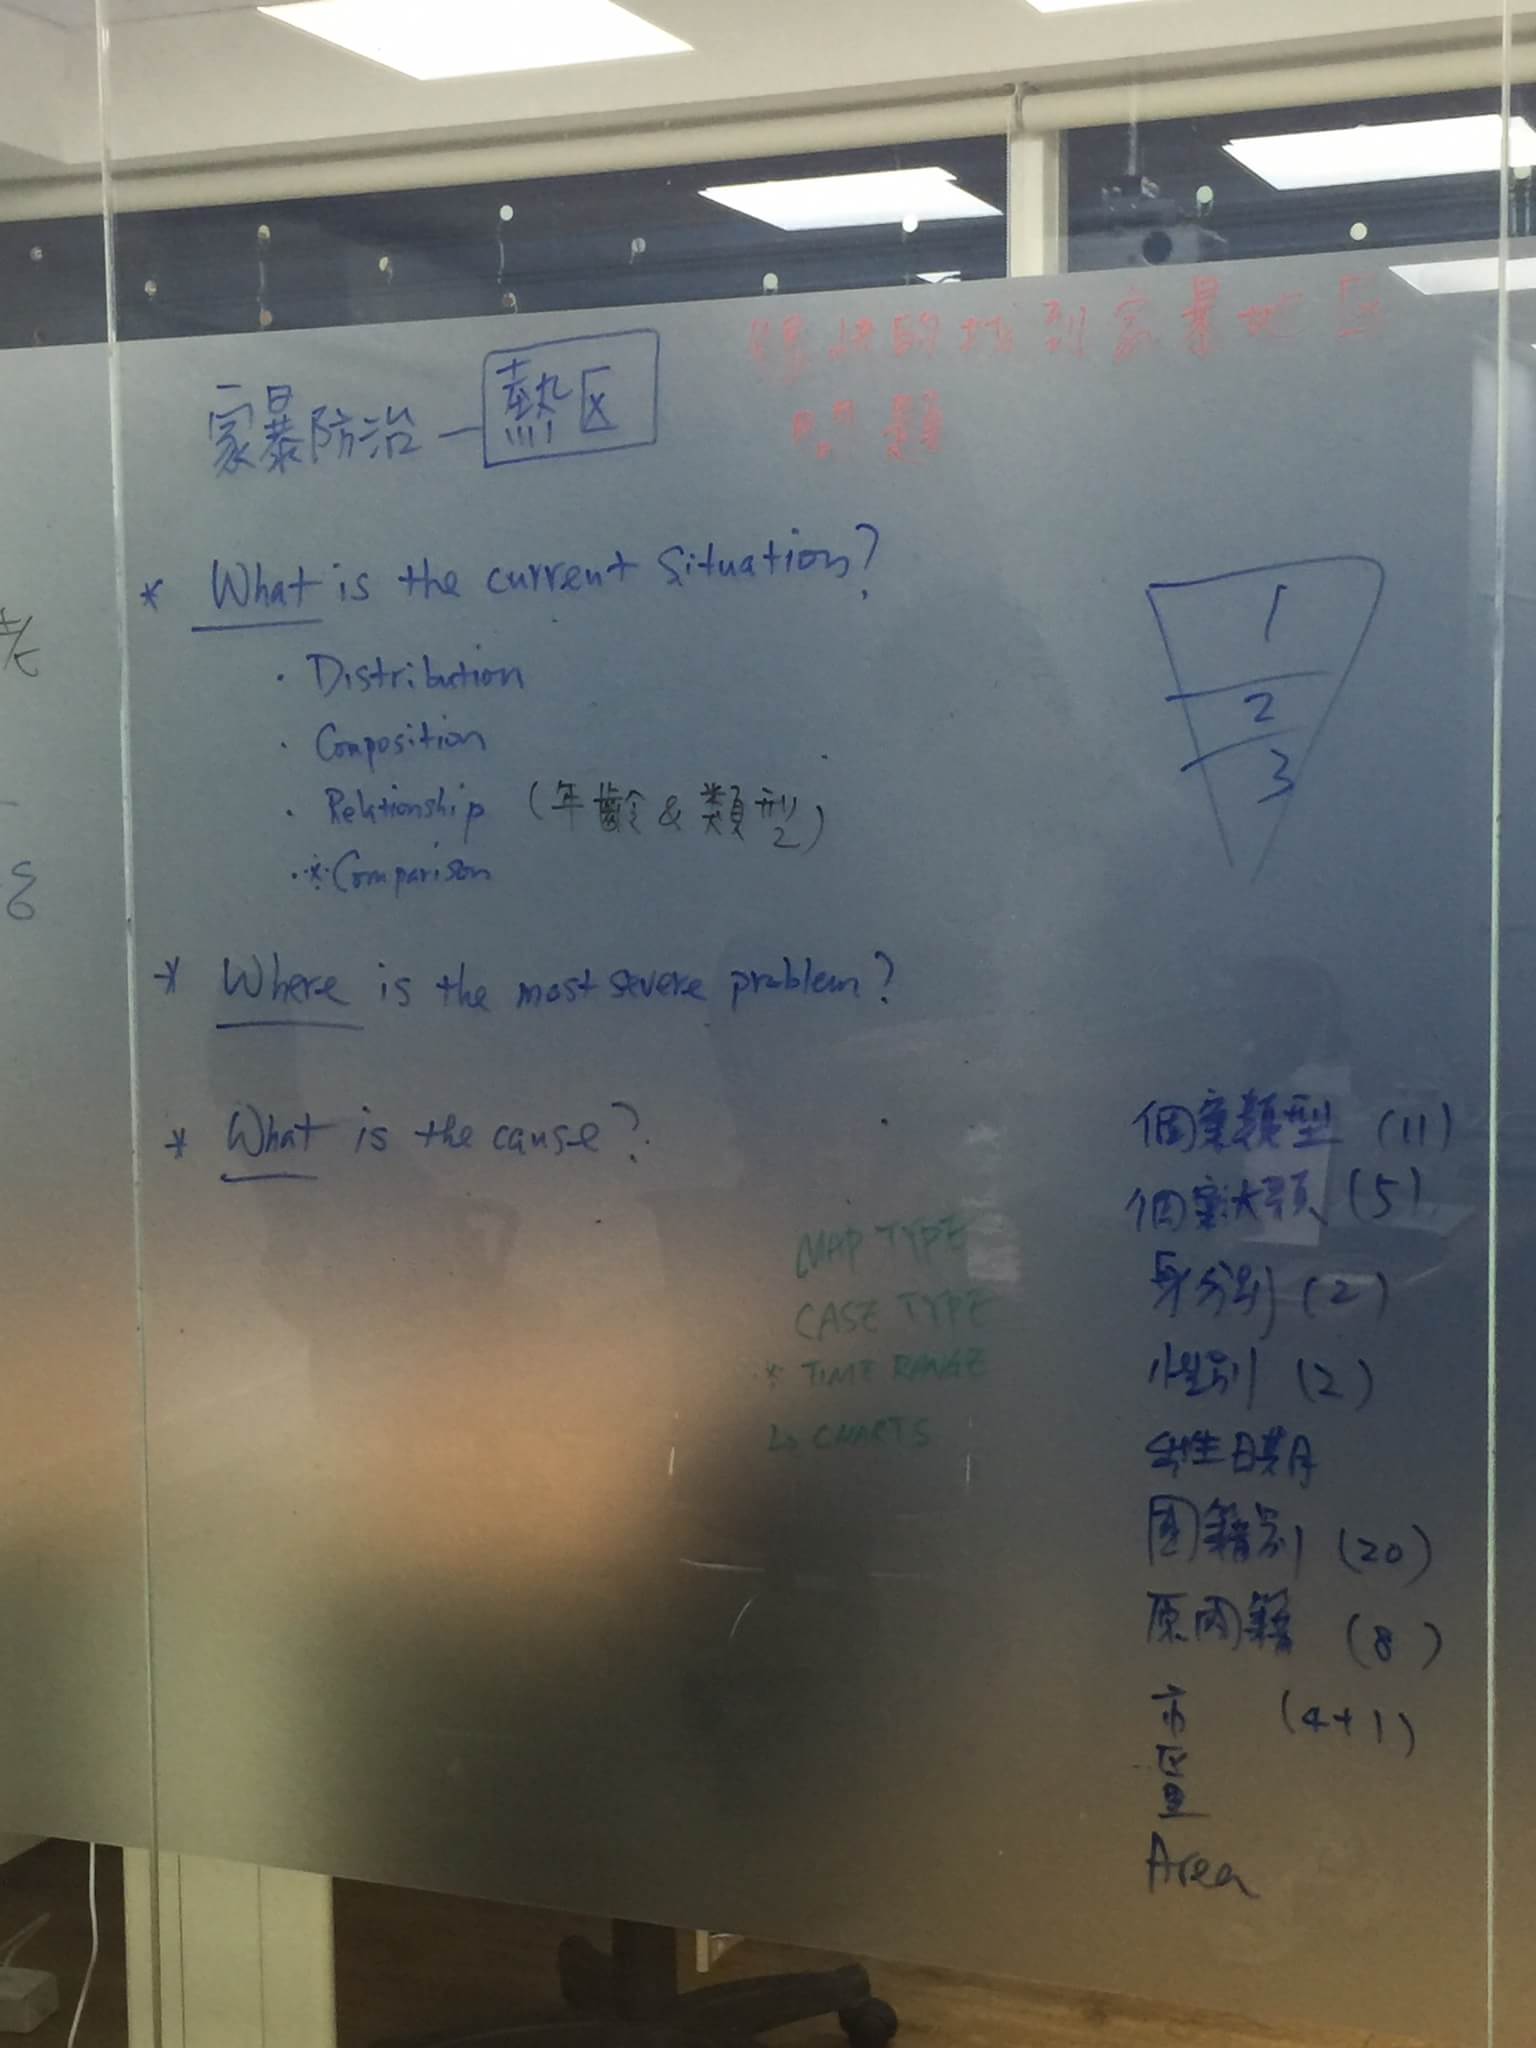 家暴防治 — 熱区
很快的找到家暴地区
問題
* What is the current situation?
· Distribution
· Composition
· Relationship (年齡 & 類型)
· * Comparison
* Where is the most severe problem?
* What is the cause?
1
2
3
MAP TYPE
CASE TYPE
* TIME RANGE
↳ CHARTS
個案類型 (11)
個案大類 (5)
身分別 (2)
性別 (2)
出生日期
國籍別 (20)
原因籍 (8)
市 (4+1)
里
Area